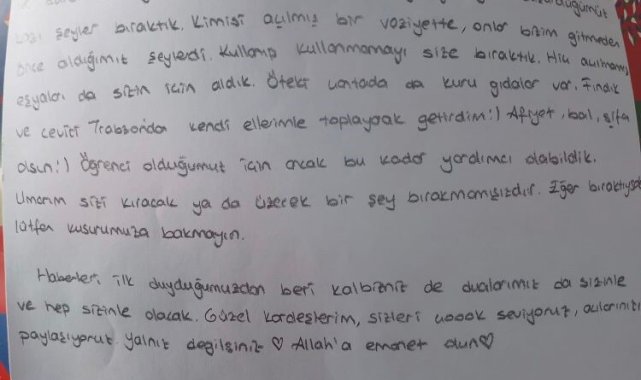 bazı şeyler bıraktık. Kimisi açılmış bir vaziyette, onlar bizim gitmeden
önce aldığımız şeylerdi. Kullanıp kullanmamayı size bıraktık. Hiç açılmamış
eşyaları da sizin için aldık. Öteki çantada da kuru gıdalar var. Fındık
ve cevizi Trabzondan kendi ellerimle toplayarak getirdim:) Afiyet, bal, şifa
olsun:) Öğrenci olduğumuz için ancak bu kadar yardımcı olabildik.
Umarım sizi kıracak ya da üzecek bir şey bırakmamışızdır. Eğer bıraktıysak
lütfen kusurumuza bakmayın.
Haberleri ilk duyduğumuzdan beri kalbimiz de dualarımız da sizinle
ve hep sizinle olacak. Güzel kardeşlerim, sizleri çoook seviyoruz, acılarınızı
paylaşıyoruz. Yalnız değilsiniz ♡ Allah'a emanet olun♡